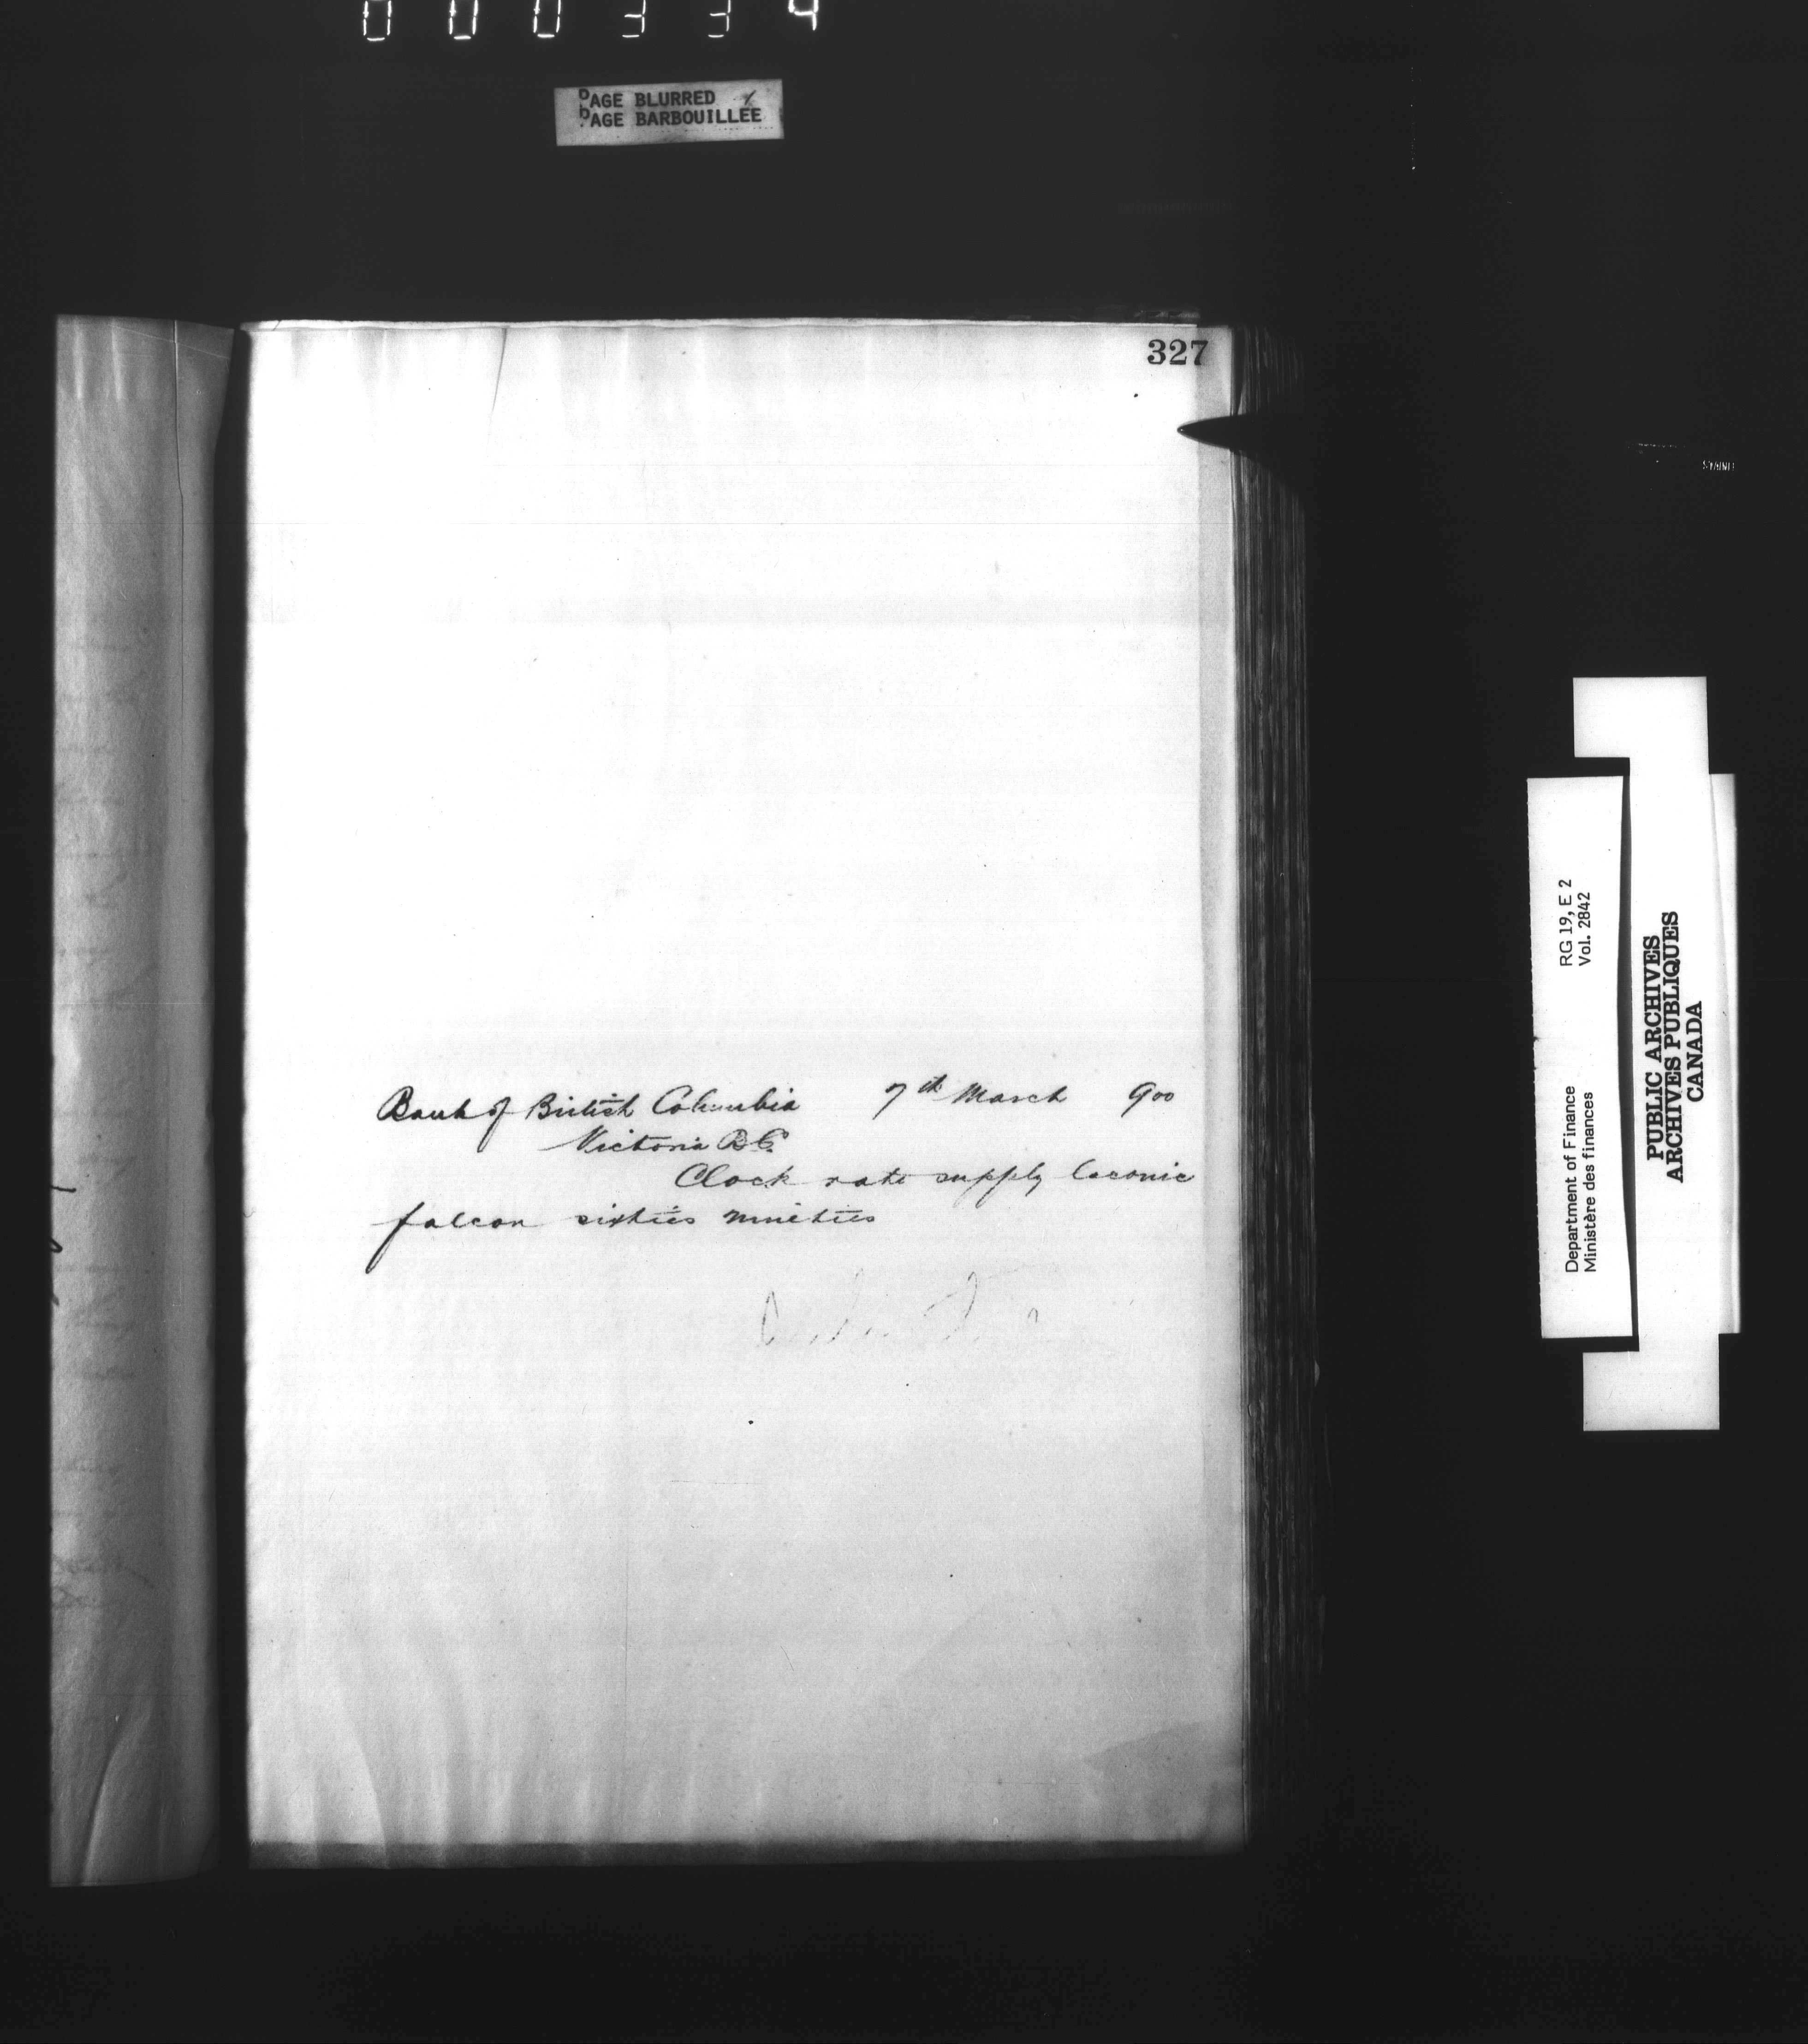 000334
PAGE BLURRED
PAGE BARBOUILLÉE
327
Bank of British Columbia 7th March 900
Victoria B.C.
Clock rate supply laconic
falcon sixties nineties
Department of Finance RG 19, E 2
Ministère des finances Vol. 2842
PUBLIC ARCHIVES
ARCHIVES PUBLIQUES
CANADA